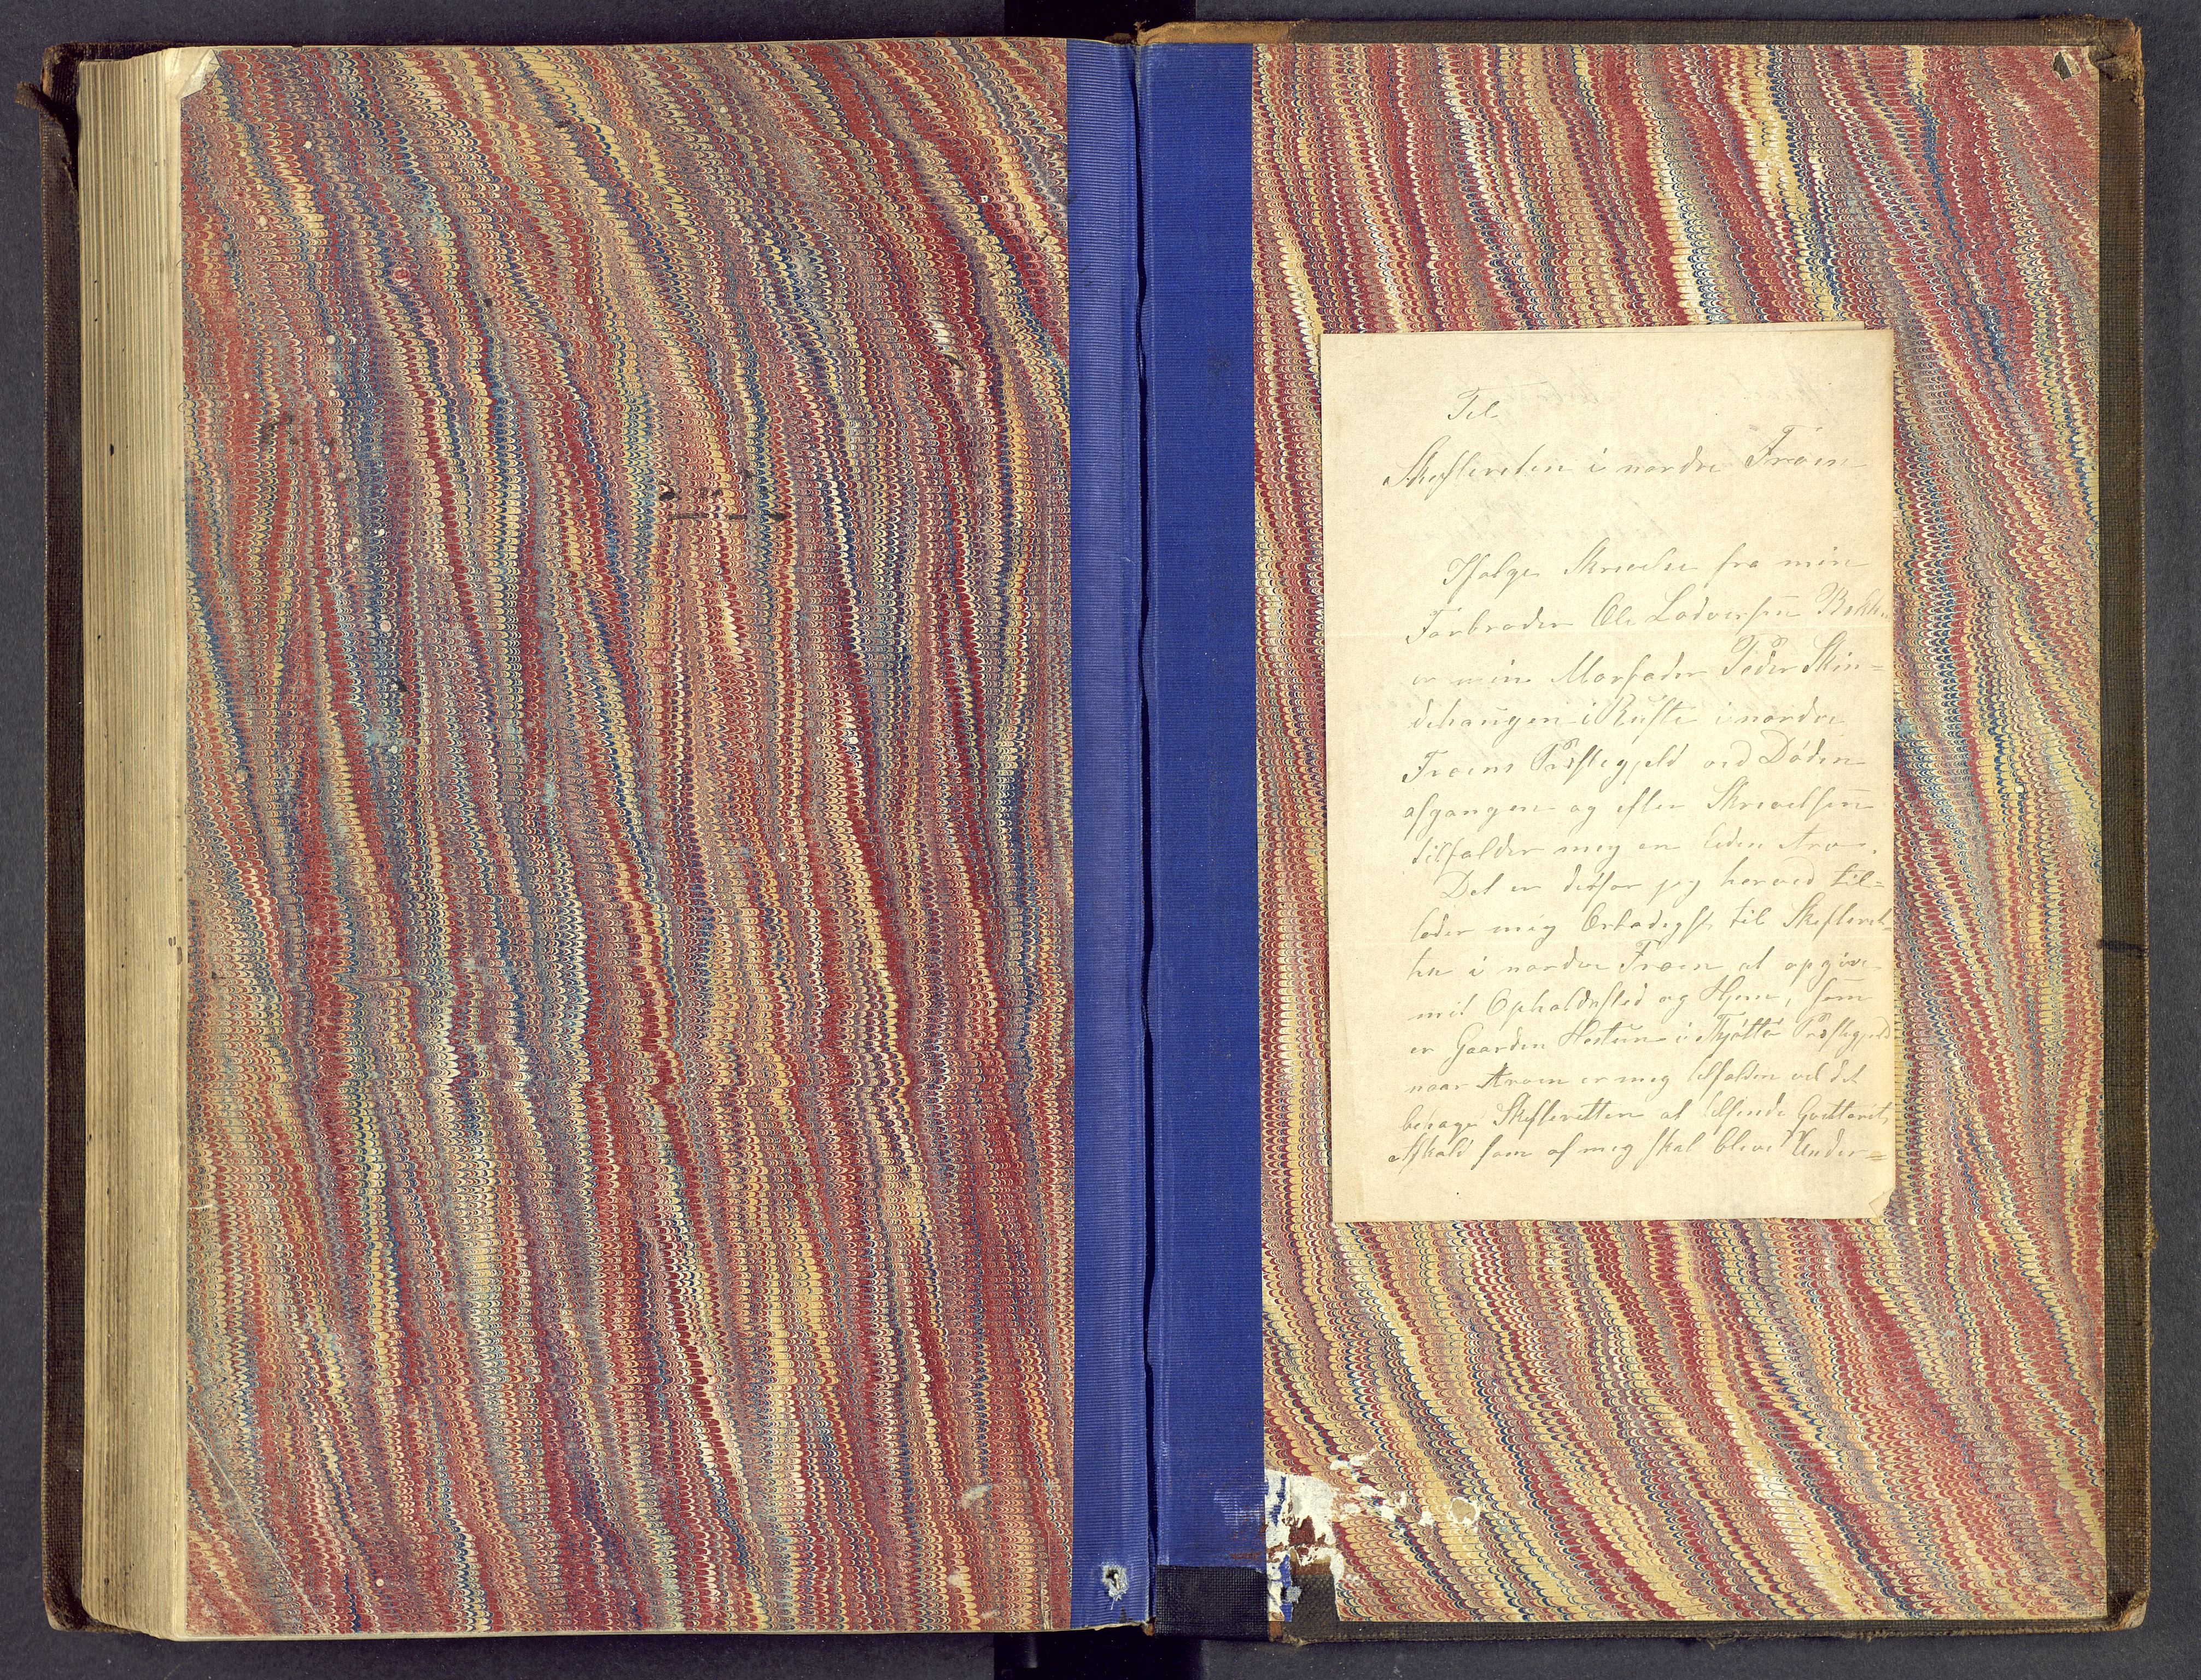 Til
Skifteretten i nordre Froen
Ifølge Skrivelse fra min
Farbroder Ole Lodversen
er min Morfader Peder Skin=
dehaugen i Ruste i nordre
Froens Præstegjeld ved Døden
afgangen og efter Skrivelsen
tilfalder mig en liden Arv.
Det er derfor jeg herved til=
lader mig Ærbødigst til Skifteret-
ten i nordre Froen at opgive
mit Opholdssted og Hjem, som
er Gaarden Hestun i Thjøttø Præstegjeld
naar Arven er mig tilfalden vil det
behage Skifteretten at tilsende
som af mig skal blive Under=